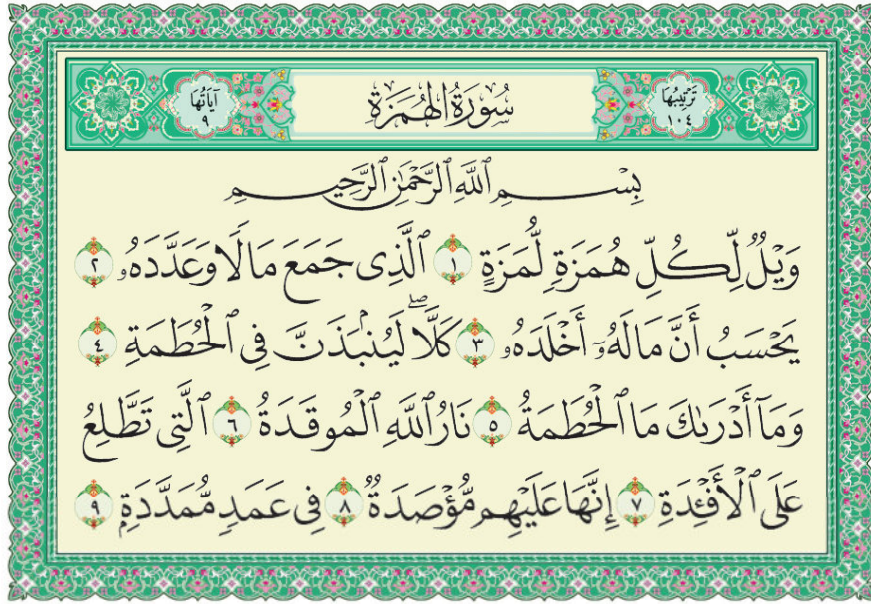 تَرْتِيبُهَا ١٠٤
سُورَةُ الْهُمَزَةِ
آيَاتُهَا ٩
بِسْمِ ٱللَّهِ ٱلرَّحْمَٰنِ ٱلرَّحِيمِ
وَيْلٌ لِّكُلِّ هُمَزَةٍ لُّمَزَةٍ ١ ٱلَّذِى جَمَعَ مَالًا وَعَدَّدَهُۥ ٢
يَحْسَبُ أَنَّ مَالَهُۥٓ أَخْلَدَهُۥ ٣ كَلَّاۖ لَيُنۢبَذَنَّ فِى ٱلْحُطَمَةِ ٤
وَمَآ أَدْرَىٰكَ مَا ٱلْحُطَمَةُ ٥ نَارُ ٱللَّهِ ٱلْمُوقَدَةُ ٦ ٱلَّتِى تَطَّلِعُ
عَلَى ٱلْأَفْـِٔدَةِ ٧ إِنَّهَا عَلَيْهِم مُّؤْصَدَةٌ ٨ فِى عَمَدٍ مُّمَدَّدَةٍۭ ٩